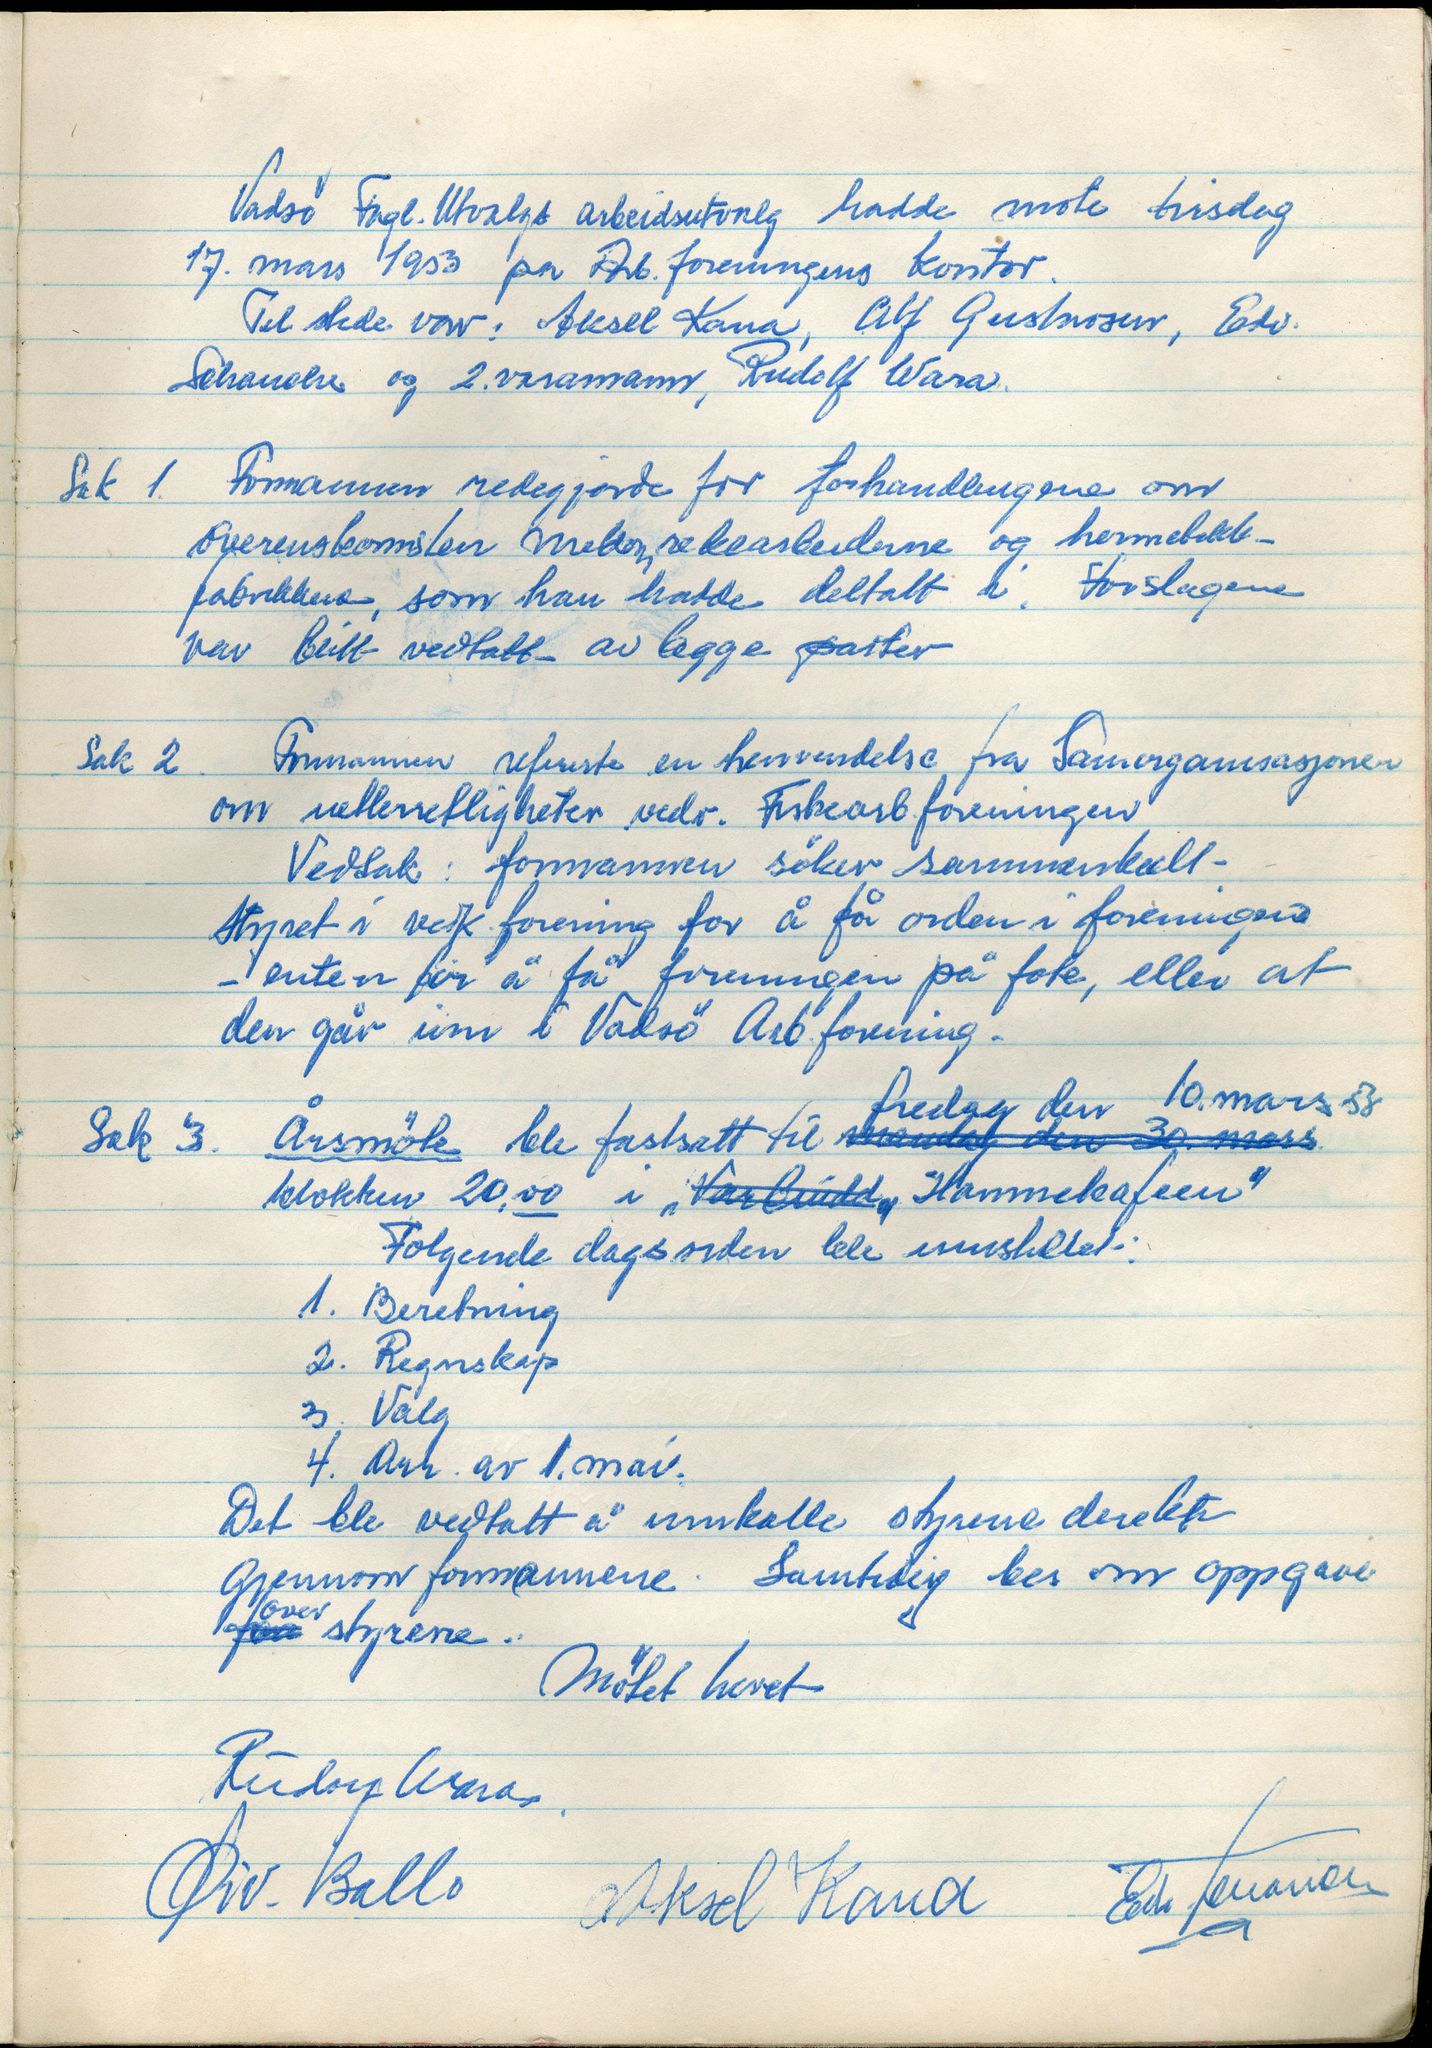 Vadsö Fagl. Utvalgs arbeidsutvalg hadde möte tirsdag
17. mars 1953 på Arb. foreningens kontor.
Til stede var: Aksel Kana, Alf Gustavsen, Edv.
og 2. varamann, Rudolf Wara.
Sak 1. Formannen redegjorde for forhandlingene om
overenskomsten mellom rekearbeiderne og hermetikk-
fabrikkene, som han hadde deltatt i. Forslagene
var blitt vedtatt av begge parter
Sak 2. Formannen refererte en henvendelse fra Samorganisasjonen
om uetterretligheter vedr. Fiskearb.foreningen
Vedtak: formannen söker sammenkalt
styret i vedk. forening for å få orden i foreningen
- enten for å få foreningen på fote, eller at
den går inn i Vadsö Arb.forening.
fredag den 10. mars 53
Sak 3. Årsmöte ble fastsatt til mandag den 30. mars
klokken 20,00 i „Vårbudd" Hammekafeen"
Følgende dagsorden ble innstillet:
1. Beretning
2. Regnskap
3. Valg
4. Arr. av 1. mai.
Det ble vedtatt å innkalle styrene direkte
gjennom formannene. Samtidig bes om oppgave
over
for styrene.
Mötet hevet
Rudolf Wara.
Øiv. Ballo Aksel Kana Edv.